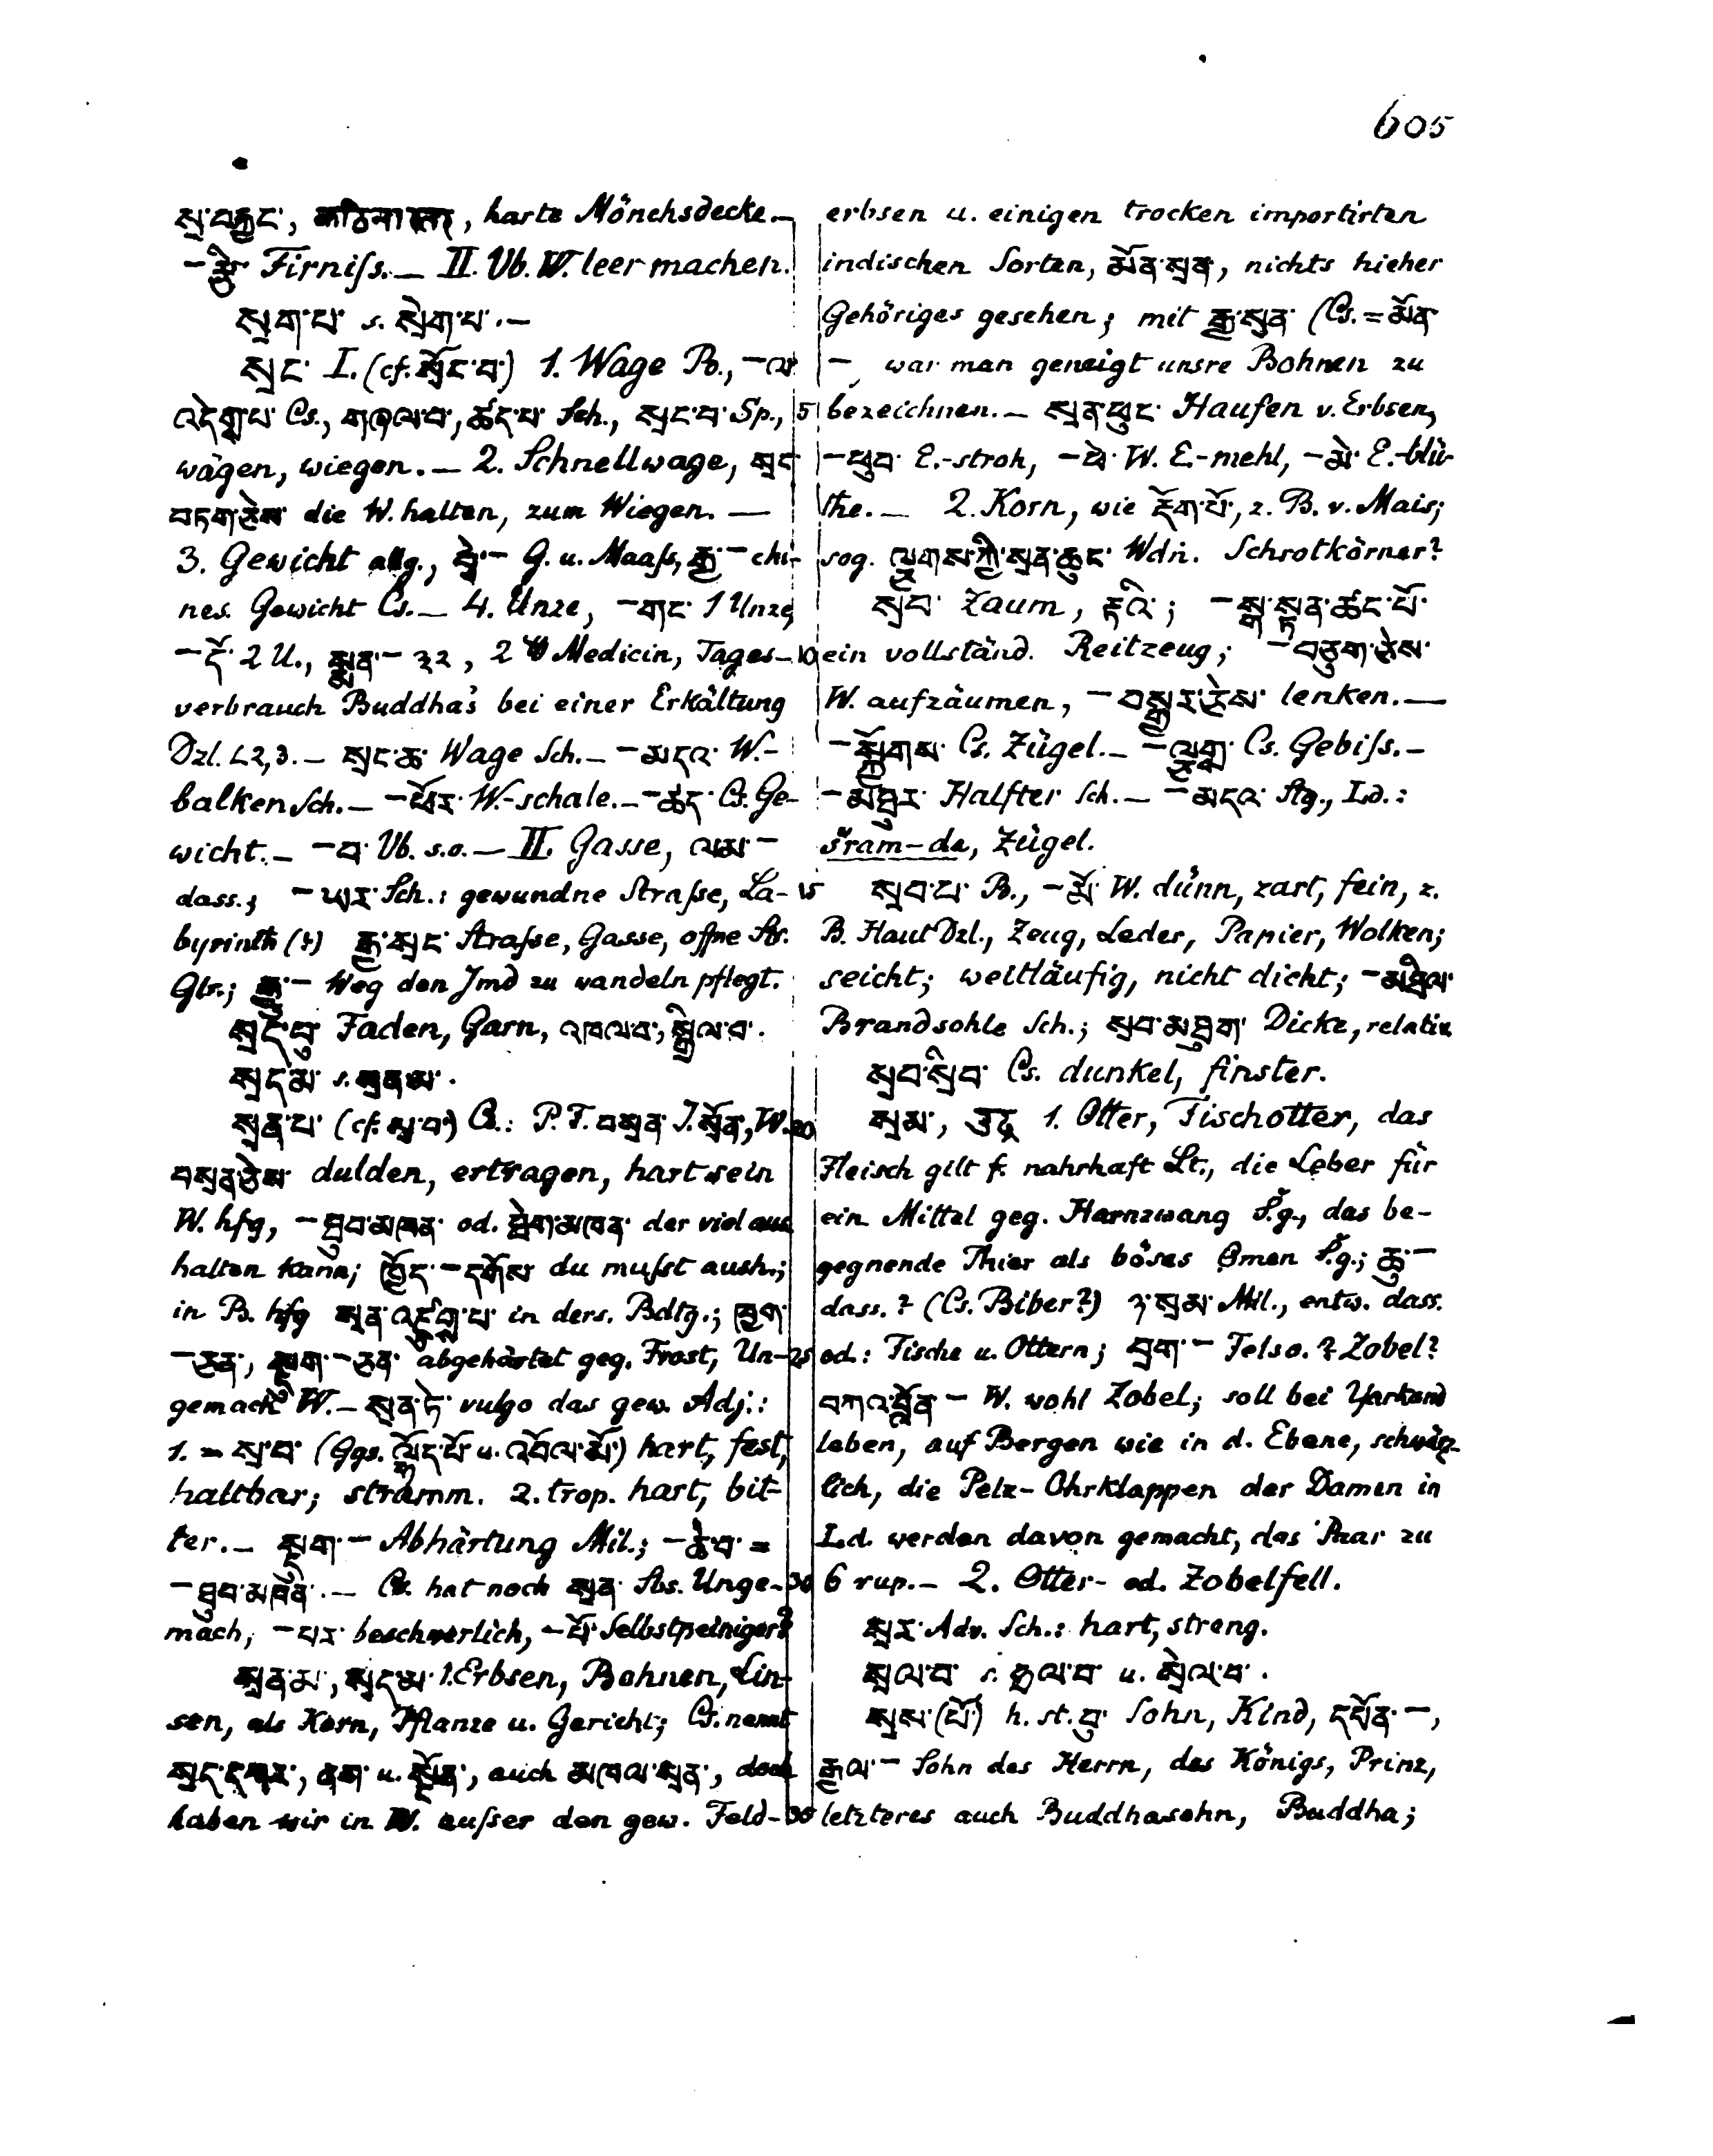 605
སྲ་བརྐྱང་, harte Mönchsdecke. —
– རྩི་ Firniſs. — II. Vb. W. leer machen.
སྲག་པ་ s. སྲེག་པ་. —
སྲང་ I. (cf. སྲོང་བ་) 1. Wage B., – ལ་
འདེགས་པ་ Cs., གཞལ་བ་, ཚད་པ་ Sch., སྲང་བ་ Sp., 5
wägen, wiegen. — 2. Schnellwage, སྲང་
བཏག་ཅེས་ die W. halten, zum Wiegen. —
3. Gewicht allg., བྲེ་ – G. u. Maaſs, རྒྱ་ – chi-
nes. Gewicht Cs. — 4. Unze, – གང་ 1 Unze,
– དོ་ 2 U., སྨན་ – ༣༢, 2 ℔ Medicin, Tages- 10
verbrauch Buddha's bei einer Erkältung
Dzl. ༢༢, 3. — སྲང་ཆ་ Wage Sch. — – མདའ་ W.-
balken Sch. — – ཕོར་ W.-schale. — – ཚད་ Cs. Ge-
wicht. — – བ་ Vb. s.o. — II. Gasse, ལམ་ –
dass.; – ཡར་ Sch.: gewundne Straſse, La- 15
byrinth (?) རྒྱ་སྲང་ Straſse, Gasse, offne Str.
Glr.; རྒྱུ་ – Weg den Jmd zu wandeln pflegt.
སྲད་བུ་ Faden, Garn, འཁལ་བ་, སྒྲིལ་བ་.
སྲད་མ་ s. སྲན་མ་.
སྲན་པ་ (cf. སྲ་བ་) Cs.: P. F. བསྲན་ J. སྲོན་, W. 20
བསྲན་ཅེས་ dulden, ertragen, hart sein
W. hfg, – ཐུབ་མཁན་ od. ཐེག་མཁན་ der viel aus
halten kann; ཁྱོད་ – དགོས་ du muſst aush.;
in B. hfg སྲན་འཛུགས་པ་ in ders. Bdtg.; ཁྱག་
– ཅན་, སྡུག་ – ཅན་ abgehärtet geg. Frost, Un- 25
gemach W. — སྲན་ཏེ་ vulgo das gew. Adj.:
1. = སྲ་བ་ (Ggs. ལྷོད་པོ་ u. འབོལ་མོ་) hart, fest,
haltbar; stramm. 2. trop. hart, bit-
ter. — སྡུག་ – Abhärtung Mil.; – ཆེ་བ་ =
– ཐུབ་མཁན་. — Cs. hat noch སྲན་ Sbs. Unge- 30
mach, – པར་ beschwerlich, – པོ་ Selbstpeiniger?
སྲན་མ་, སྲད་མ་ 1. Erbsen, Bohnen, Lin-
sen, als Korn, Pflanze u. Gericht; Cs. nennt
u. auch མཁལ་སྲན་, doch
haben wir in W. auſser den gew. Feld- 35
erbsen u. einigen trocken importirten
indischen Sorten, མོན་སྲན་, nichts hieher
Gehöriges gesehen; mit རྒྱ་སྲན་ (Cs. = མོན་
–, war man geneigt unsre Bohnen zu
bezeichnen. — སྲན་ཕུང་ Haufen v. Erbsen,
– ཕུབ་ E.-stroh, – ཕེ་ W. E.-mehl, – མེ་ E.-blü-
the. — 2. Korn, wie རྡོག་པོ་, z. B. v. Mais;
sog. ལྕགས་ཀྱི་སྲན་ཆུང་ Wdṅ. Schrotkörner?
སྲབ་ Zaum, རྟའི་; – སྒ་སྟན་ཚང་པོ་
ein vollständ. Reitzeug; – བཅུག་ཅེས་
W. aufzäumen, – བསྒྱར་ཅེས་ lenken. —
– སྐྱོགས་ Cs. Zügel. — – ལྕགས་ Cs. Gebiſs. —
– མཐུར་ Halfter Sch. — – མདའ་ Stg., Ld.:
šram-da, Zügel.
སྲབ་པ་ B., – མོ་ W. dünn, zart, fein, z.
B. Haut Dzl., Zeug, Leder, Papier, Wolken;
seicht; weitläufig, nicht dicht; – མཐིལ་
Brandsohle Sch.; སྲབ་མཐུག་ Dicke, relativ
སྲབ་སྲིབ་ Cs. dunkel, finster.
སྲམ་, उद्र 1. Otter, Fischotter, das
Fleisch gilt f. nahrhaft Lt., die Leber für
ein Mittel geg. Harnzwang S.g., das be-
gegnende Thier als böses Omen S.g.; ཆུ་ –
dass.? (Cs. Biber?) ཉ་སྲམ་ Mil., entw. dass.
od.: Fische u. Ottern; བྲག་ – Fels o.? Zobel?
བཀའ་བློན་ – W. wohl Zobel; soll bei Yarkand
leben, auf Bergen wie in d. Ebene, schwärz-
lich, die Pelz-Ohrklappen der Damen in
Ld. werden davon gemacht, das Paar zu
6 rup. — 2. Otter- od. Zobelfell.
སྲར་ Adv. Sch.: hart, streng.
སྲལ་བ་ s. རྩལ་བ་ u. སྲེལ་བ་.
སྲས་(པོ་) h. st. བུ་ Sohn, Kind, དཔོན་ –,
རྒྱལ་ – Sohn des Herrn, des Königs, Prinz,
letzteres auch Buddhasohn, Buddha;